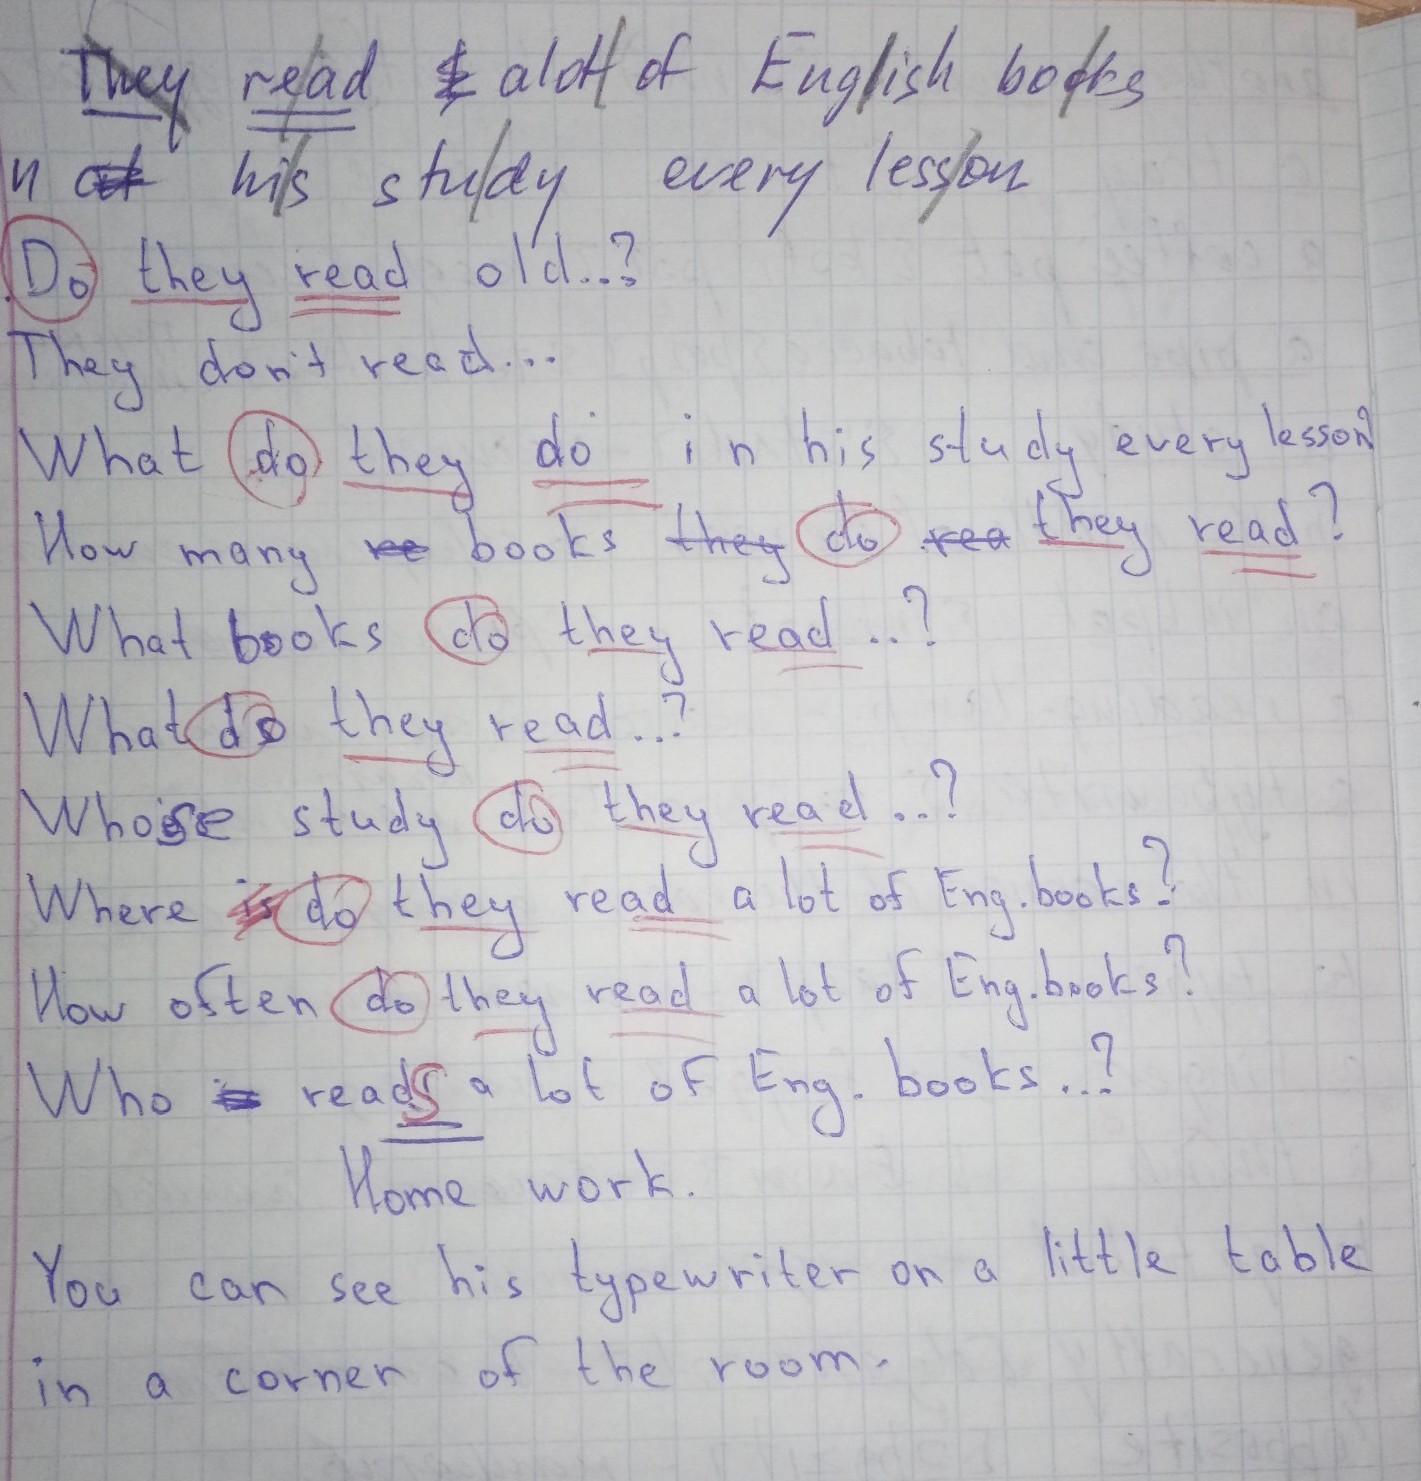 They read a lot of English books
in his study every lesson
Do they read old..?
They don't read...
What do they do in his study every lesson?
How many books they do rea they read?
What books do they read ..?
What do they read...?
Whose study do they read ..?
Where is do they read a lot of Eng. books?
How often do they read a lot of Eng. books?
Who is reads a lot of Eng. books...?
Home work.
You can see his typewriter on a little table
in a corner of the room.